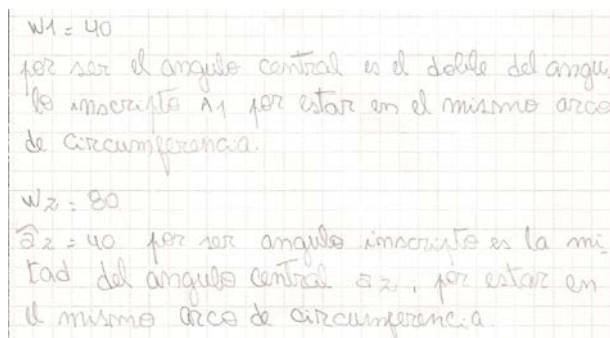 W1 = 40
por ser el angulo central es el doble del angu
lo inscripto A1 por estar en el mismo arco
de circumferencia.
W2 = 80
a2 = 40 por ser angulo inscripto es la mi-
tad del angulo central a2, por estar en
el mismo arco de circumferencia.